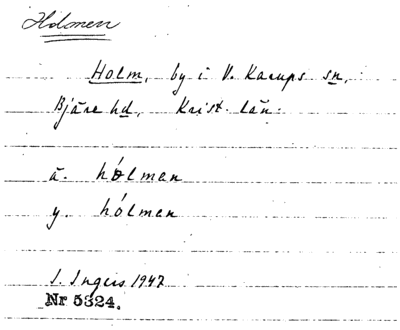 Holmen
Holm, by i V. Karups sn,
Bjäre hd, Krist. län.
ä. hólman
y. hólmen
I. Ingers 1947
Nr 5324.